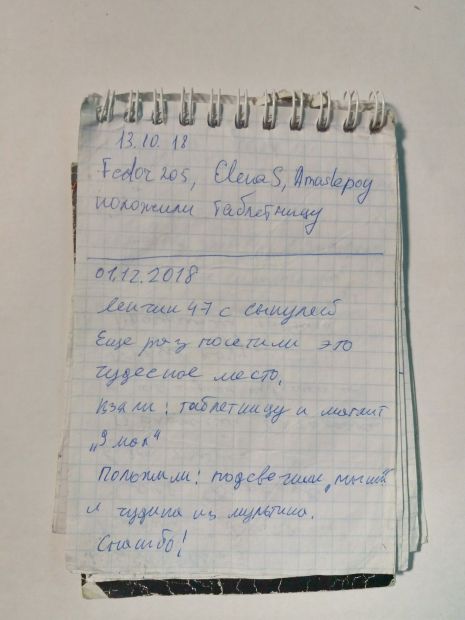 13.10.18
Fedor205, ElenaS, Amastepoy
положили таблетницу
01.12.2018
Ленчик 47 с сынулей
Еще раз посетили это
чудесное место.
Взяли: таблетницу и магнит
„9 мая“
Положили: подсвечник „мышь“
и чудика из мультика.
Спасибо!